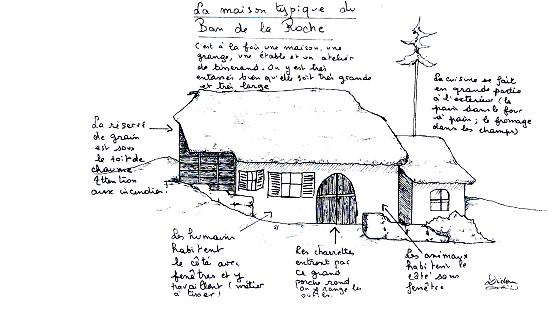 La maison typique du
Ban de la Roche
C'est à la fois une maison, une
grange, une étable et un atelier
de tisserand. On y est très
entassés bien qu'elle soit très grande
et très large
La cuisine se fait
en grande partie
à l'extérieur (le
pain dans le four
à pain ; le fromage
dans les champs)
La réserve
de grain
est sous
le toit de
chaume
Attention
aux incendies !
Les humains
habitent
le côté avec
fenêtres et y
travaillent (métier
à tisser !)
Les charrettes
entrent par
ce grand
porche rond
On y range les
outils.
Les animaux
habitent le
côté sous
fenêtre